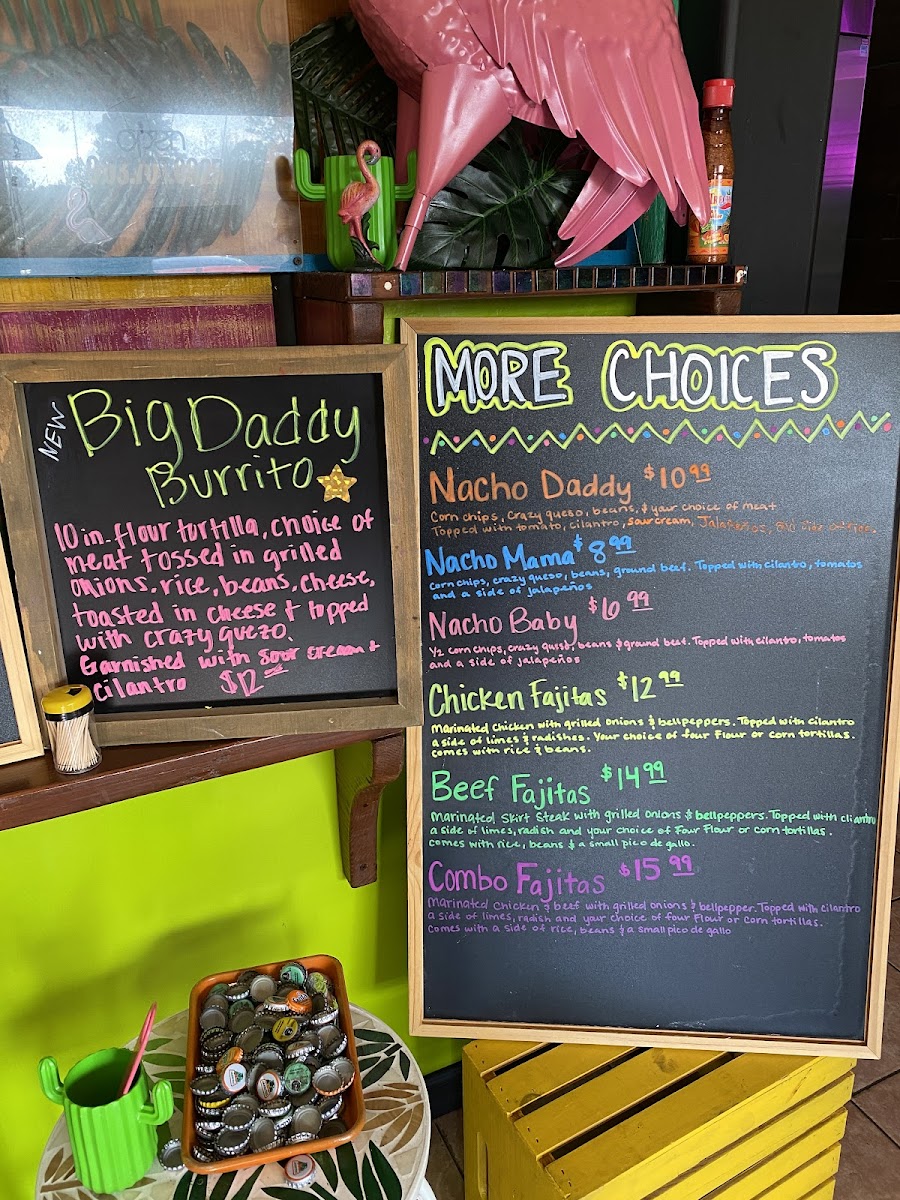 open
NEW
Big Daddy
Burrito
10 in. flour tortilla, choice of
meat tossed in grilled
onions, rice, beans, cheese,
toasted in cheese & topped
with crazy quezo.
Garnished with sour cream &
cilantro $12
MORE CHOICES
Nacho Daddy $10.99
Corn chips, crazy queso, beans, & your choice of meat
Topped with tomato, cilantro, sour cream, Jalapeños,
Nacho Mama $8.99
corn chips, crazy queso, beans, ground beef. Topped with cilantro, tomatos
and a side of jalapeños
Nacho Baby $6.99
1/2 corn chips, crazy queso, beans & ground beef. Topped with cilantro, tomatos
and a side of jalapeños
Chicken Fajitas $12.99
Marinated Chicken with grilled onions & bellpeppers. Topped with cilantro
a side of limes & radishes. Your choice of four Flour or corn tortillas.
comes with rice & beans.
Beef Fajitas $14.99
Marinated Skirt Steak with grilled onions & bellpeppers. Topped with cliantro
a side of limes, radish and your choice of Four Flour or corn tortillas.
comes with rice, beans & a small pico de gallo.
Combo Fajitas $15.99
Marinated Chicken & beef with grilled onions & bellpepper. Topped with cilantro
a side of limes, radish and your choice of four Flour or corn tortillas.
Comes with a side of rice, beans & a small pico de gallo